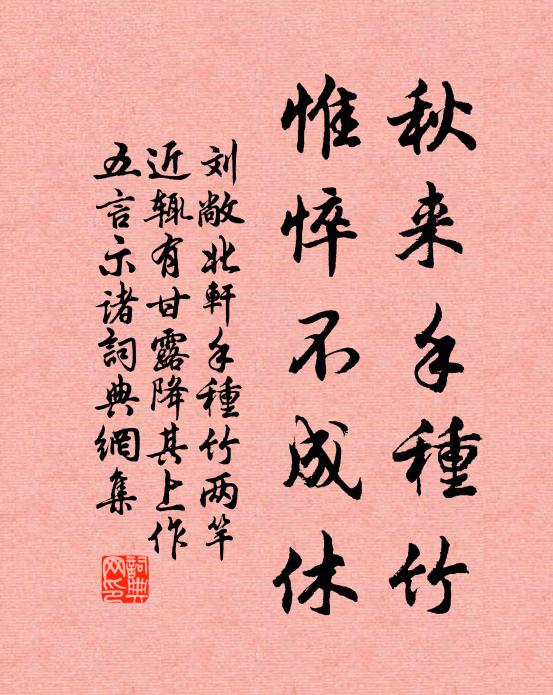 秋来手種竹
惟悴不成休
刘敞北軒手種竹两竿
近辄有甘露降其上作
五言示诸詞典網集
詞典网印